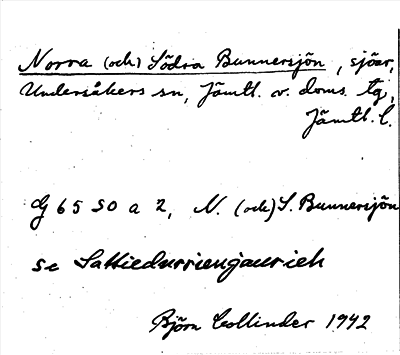 Norra (och) Södra Bunnersjön, sjöar,
Undersåkers sn, Jämtl. v. doms. tg,
Jämtl. l.
G 65 SO a 2, N. (och) S. Bunnersjön
se Sattiedurriengaurieh
Björn Collinder 1942